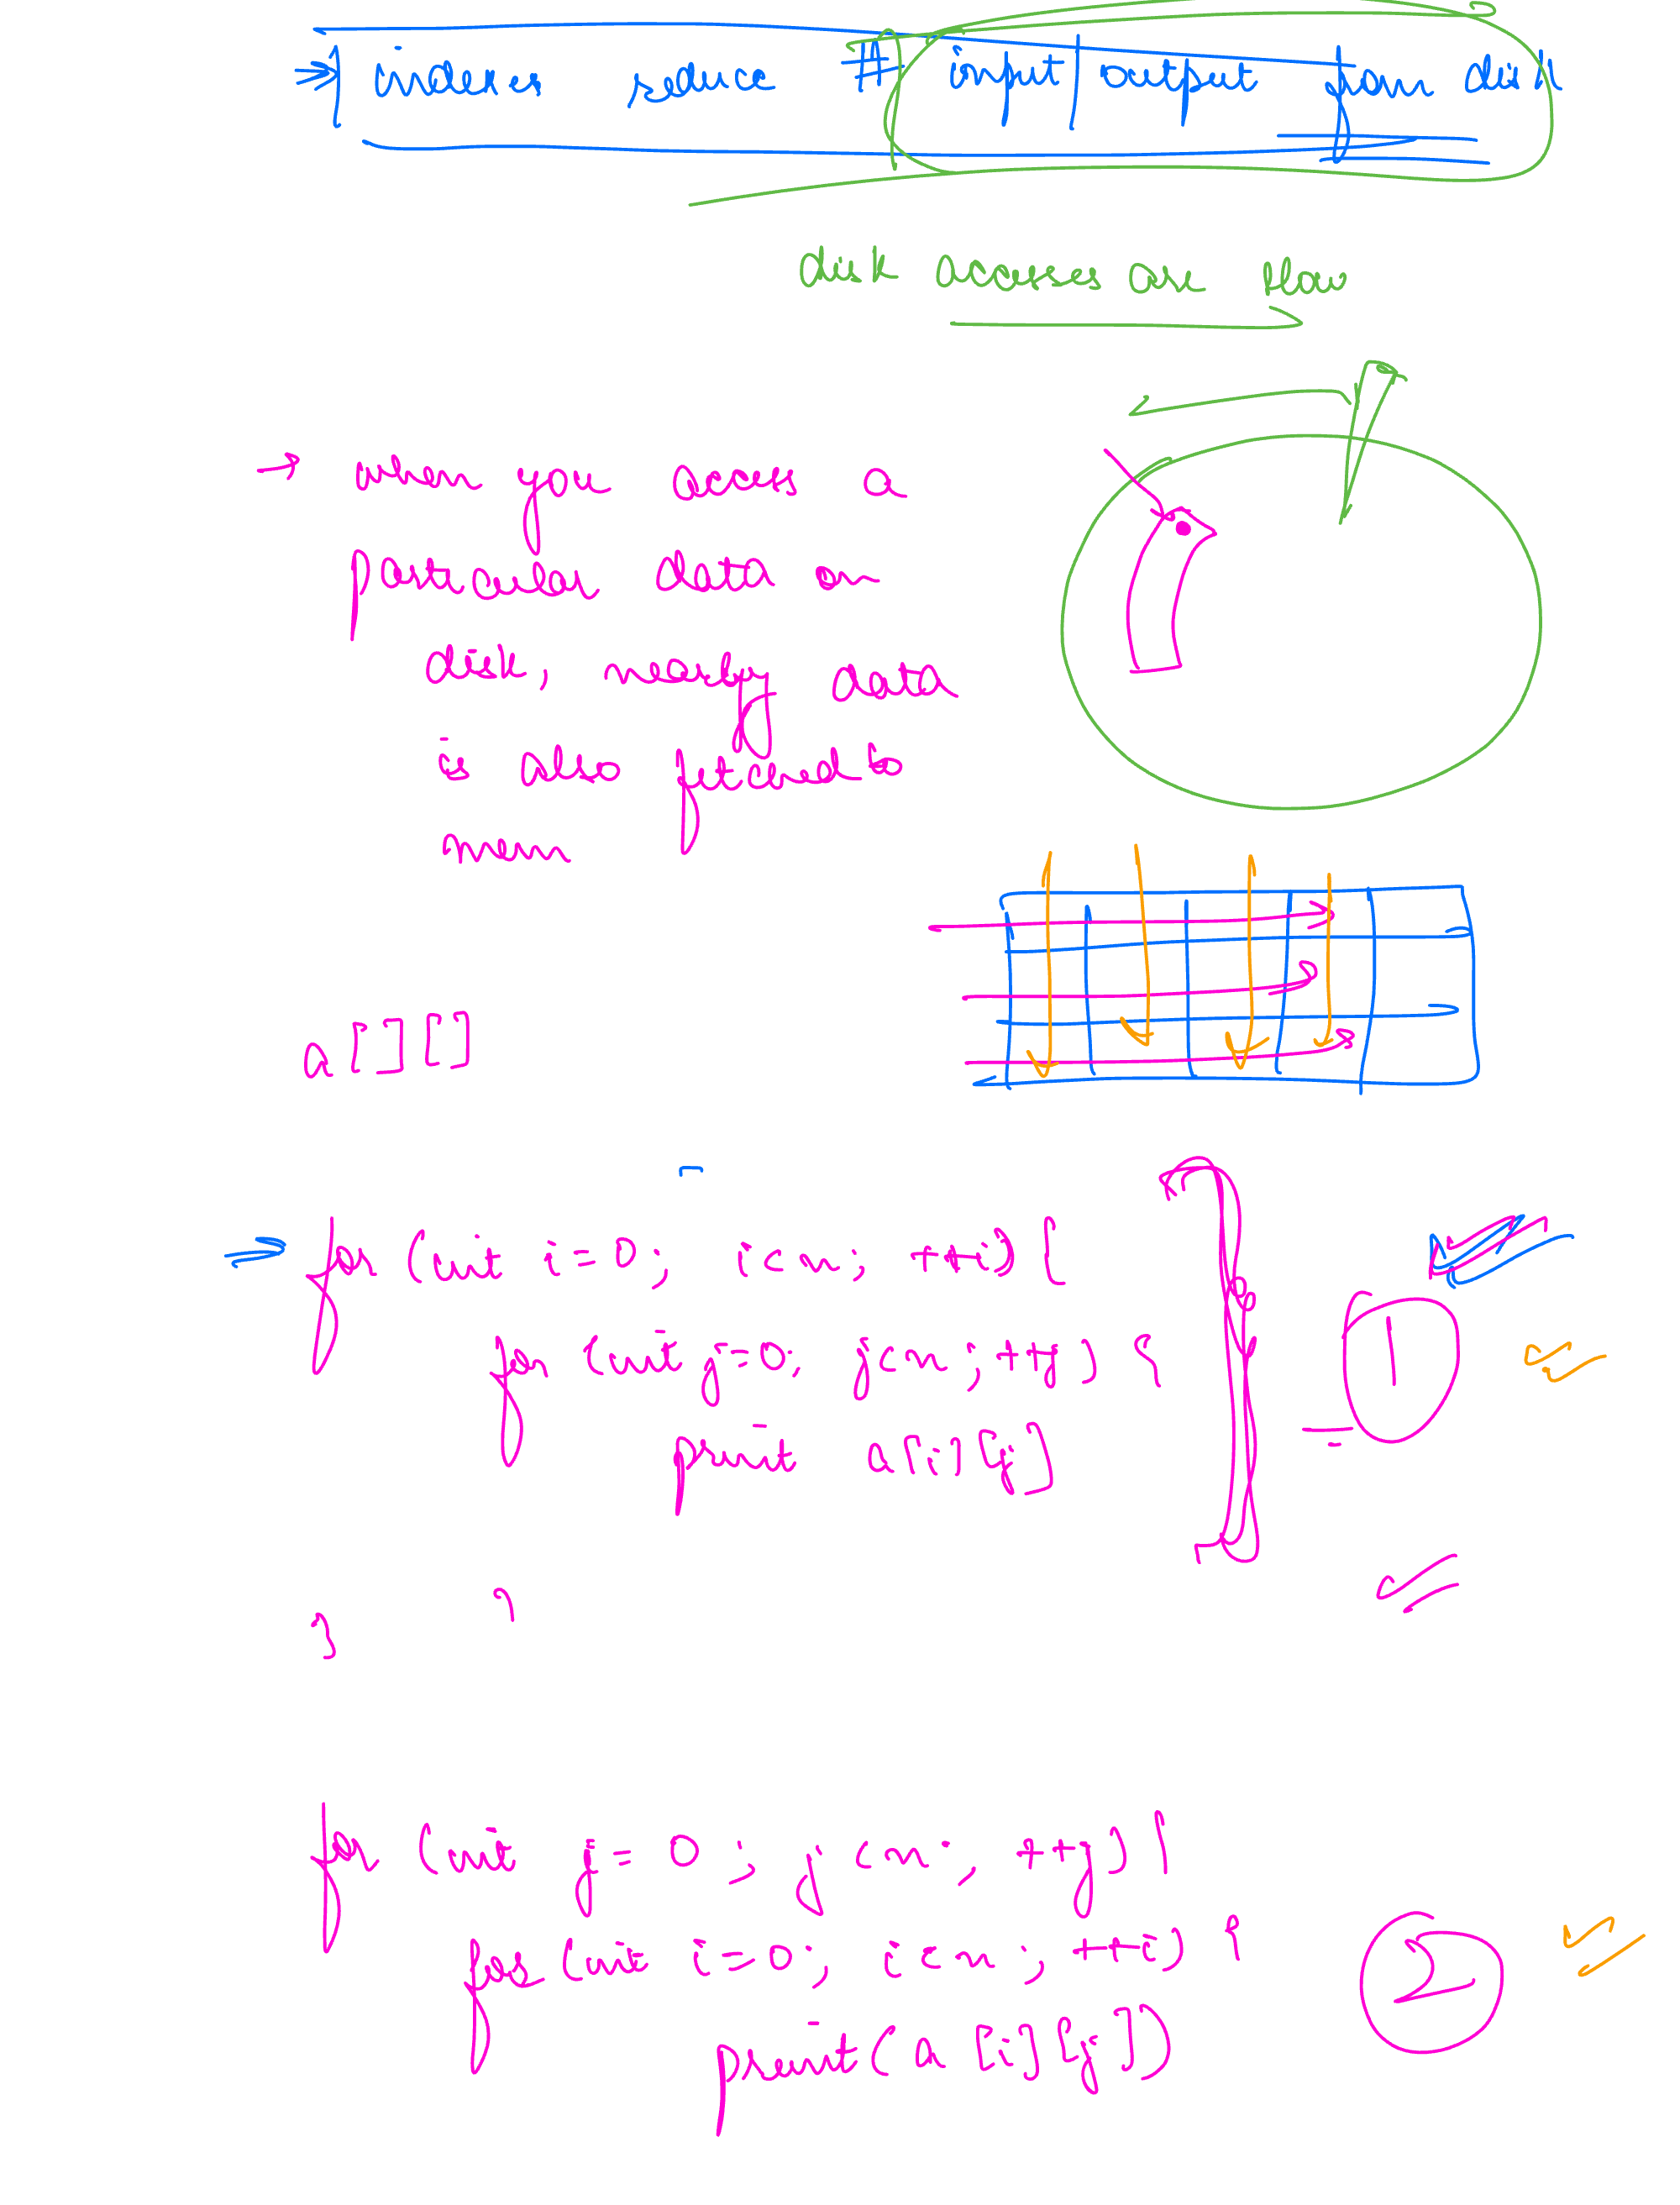 indexes reduce # input output from disk
disk accesses are slow
→ when you access a
particular data on
disk, nearby data
is also fetched to
mem
a[][]
⇒ for (int i=0; i<n; ++i) {
for (int j=0; j<n; ++j) {
print a[i][j]
}
}
1
for (int j=0; j<n; ++j) {
for (int i=0; i<n; ++i) {
print(a[i][j])
2